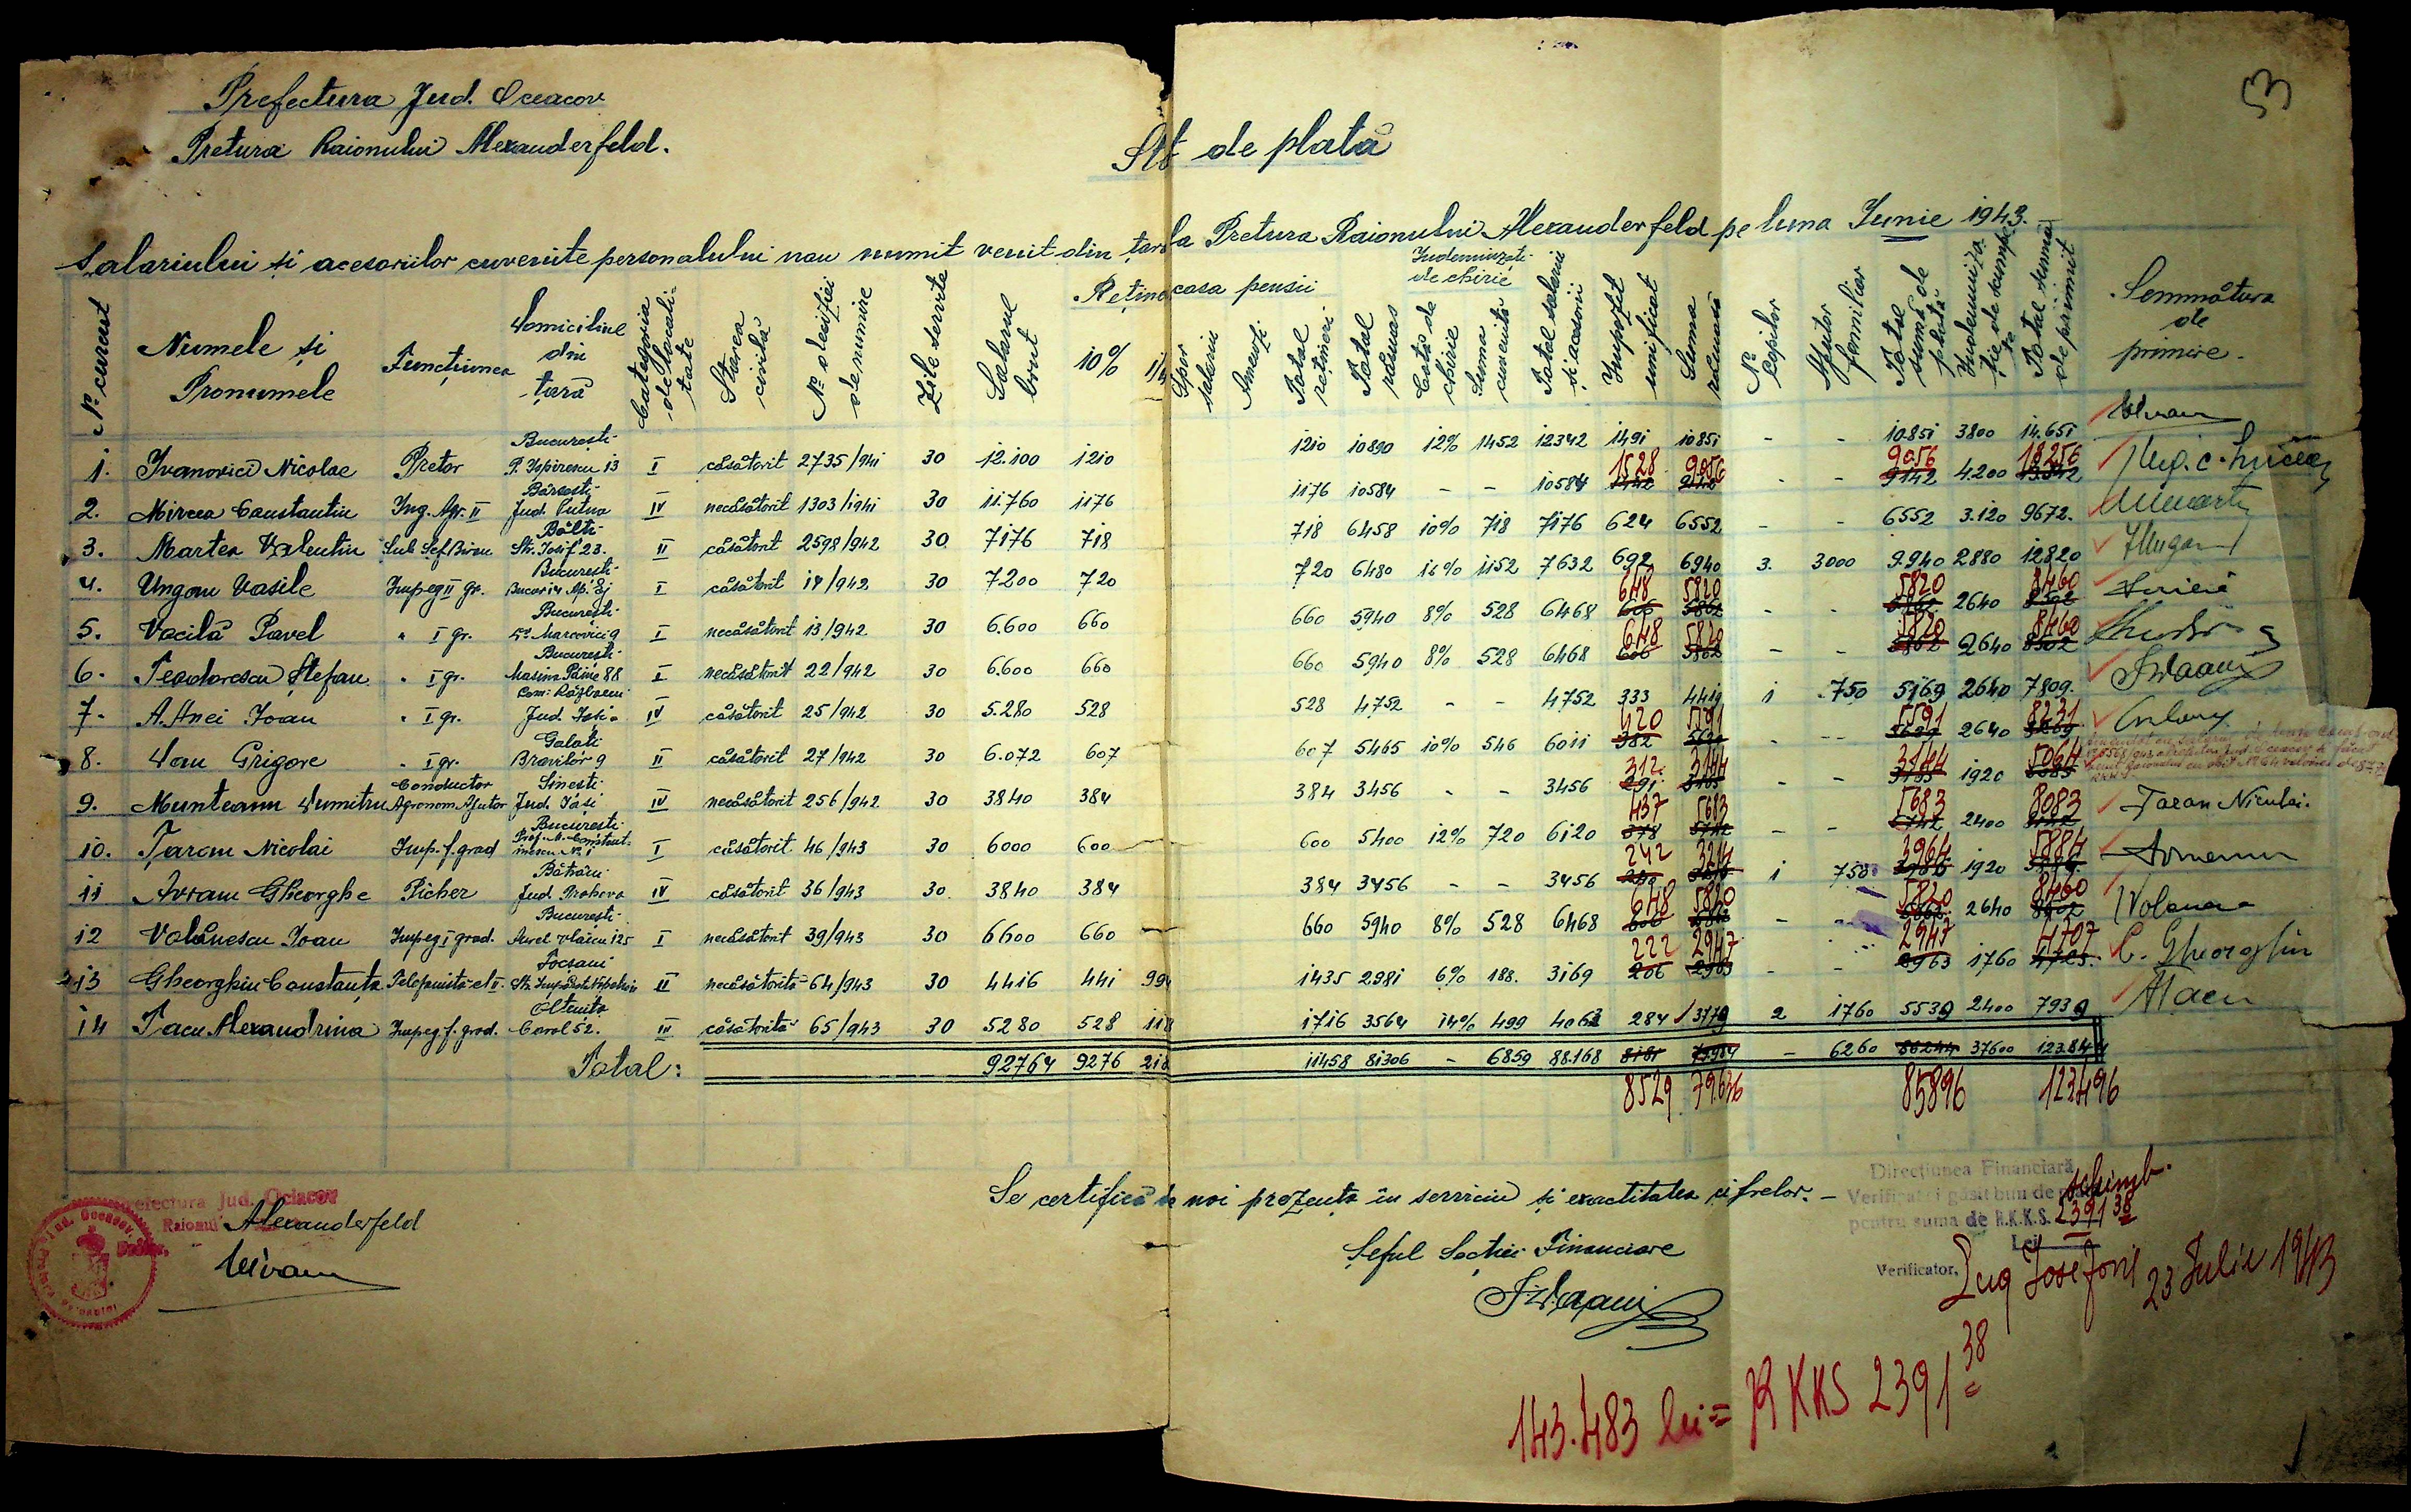 53
Prefectura Jud. Oceacov
Pretura Raionului Alexanderfeld.
Stat de plată
Salariului și acesoriilor cuvenite personalului nou numit venit din țară la Pretura Raionului Alexanderfeld pe luna Iunie 1943.
Nº curent Numele și Pronumele Funcțiunea Domiciliul din țară Categoria de localitate Starea civilă Nº deciziei de numire Zile servite Salarul brut Rețineri casa pensii 10% Spor salariu Amenzi Total rețineri Total rămas Indemnizați de chirie Cota de chirie Suma cuvenită Total salarii și acesorii Impozit unificat Suma rămasă Nº copiilor Ajutor familiar Total suma de plată Total suma de primit Semnătura de primire.
1. Ivanovici Nicolae Pretor București P. Ispirescu 13 I căsătorit 2735/941 30 12.100 1210 1210 10890 12% 1452 12342 1491 10851 - - 10851 3800 14.651
2. Mircea Constantin Ing. Agr. II Bârsești Jud. Putna IV necăsătorit 1303/1941 30 11.760 1176 1176 10584 - - 10584 1528 9056 - - 9056 9142 4.200 13.256 Ing. c. Mircea
3. Martea Valentin Sub Șef Birou Bălți Str. Iosif 23. II căsătorit 2598/942 30 7176 718 718 6458 10% 718 7176 624 6552 - - 6552 3.120 9672.
4. Ungan Vasile Impeg II gr. București I căsătorit 14/942 30 7200 720 720 6480 16% 1152 7632 692 6940 3. 3000 9.940 2880 12820
5. Vacilă Pavel " I gr. București I necăsătorit 13/942 30 6.600 660 660 5940 8% 528 6468 648 606 5820 5862 - - 5820 5862 2640 8460 8502
6. Teodorescu Ștefan " I gr. București 88 I necăsătorit 22/942 30 6.600 660 660 5940 8% 528 6468 648 606 5820 5862 - - 5820 5862 2640 8460 8502
7. A. Anei Ioan " I gr. Com. Războeni Jud. Iași IV căsătorit 25/942 30 5.280 528 528 4752 - - 4752 333 4419 1 750 5169 2640 7809.
8. Dan Grigore " I gr. Galați Bravilor 9 II căsătorit 27/942 30 6.072 607 607 5465 10% 546 6011 420 382 5591 - - 5591 2640 8231
9. Munteanu Dumitru Conductor Agronom Ajutor Sinești Jud. Iași IV necăsătorit 256/942 30 3840 384 384 3456 - - 3456 312 291 3144 3165 - - 3144 3165 1920 5064 5085
10. Țaran Nicolai Imp. f. grad București I căsătorit 46/943 30 6000 600 600 5400 12% 720 6120 437 378 5683 5742 - - 5683 5742 2400 8083 Țaran Niculai.
11 Avram Gheorghe Picher Bătrâni Jud. Prahova IV căsătorit 36/943 30 3840 384 384 3456 - - 3456 242 3214 1 750 3964 1920 5884
12 Volănescu Ioan Impeg I grad. București Aurel Vlaicu 125 I necăsătorit 39/943 30 6600 660 660 5940 8% 528 6468 648 606 5820 5862 - - 5820 5862 2640 8460 8502
13 Gheorghiu Constanța Telefonistă cl. II. Focșani II necăsătorită 64/943 30 4416 441 994 1435 2981 6% 188. 3169 222 206 2947 2963 - - 2947 2963 1760 4707 4723. C. Gheorghiu
14 Tacu Alexandrina Impeg f. grad. Oltenița Carol 52. III căsătorită 65/943 30 5280 528 1716 3564 14% 499 4063 284 3779 2 1760 5539 2400 7939 ATacu
Total: 92764 9276 11458 81306 - 6859 88.168 8181 - 6260 86244 37600 123.844
8529 79.636 85896 123496
Se certifică de noi prezența în serviciu și exactitatea cifrelor. -
Prefectura Jud. Ociacov
Raionul Alexanderfeld
Șeful Secției Financiare
Direcțiunea Financiară
Verificat și găsit bun de schimb.
pentru suma de R.K.K.S. 2391 38
Lei
Verificator,
23 Iulie 1943
143.483 lei = RKKS 2391 38